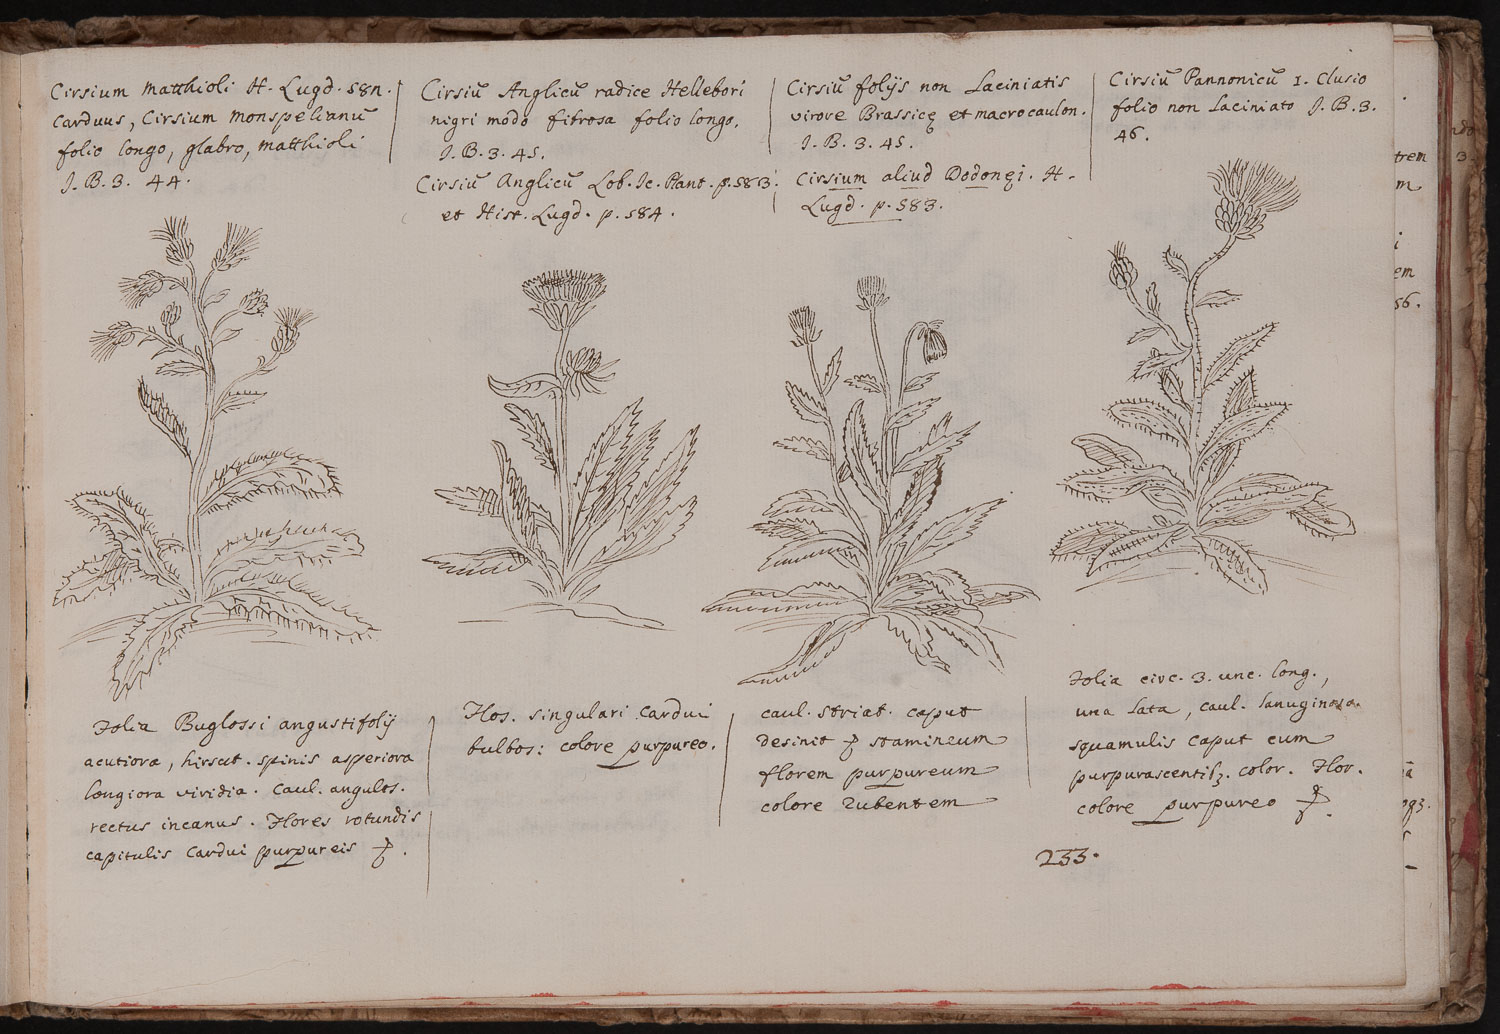 Cirsium Matthioli H. Lugd. 58n.
Carduus, Cirsium Monspelianū
folio longo, glabro, Matthioli
J. B. 3. 44.
Cirsiū Anglicū radice Hellebori
nigri modo fibrosa folio longo.
J. B. 3. 45.
Cirsiū Anglicū Lob. Ic. Plant. p. 583.
et Hist. Lugd. p. 584.
Cirsiū folijs non Laciniatis
virore Brassicę et macrocaulon.
J. B. 3. 45.
Cirsium aliud Dodonęi. H.
Lugd. p. 583.
Cirsiū Pannonicū 1. Clusio
folio non Laciniato J. B. 3.
46.
Folia Buglossi angustifolij
acutiora, hirsut. spinis asperiora
longiora viridia. Caul. angulos.
rectus incanus. Flores rotundis
capitulis Cardui purpureis
Flos. singulari Cardui
bulbos: colore purpureo.
caul. striat. caput
desinit stamineum
florem purpureum
colore rubentem
Folia circ. 3. unc. long.,
una lata, caul. lanuginosa.
squamulis caput cum
purpurascentib. color. Flor.
colore purpureo
233.